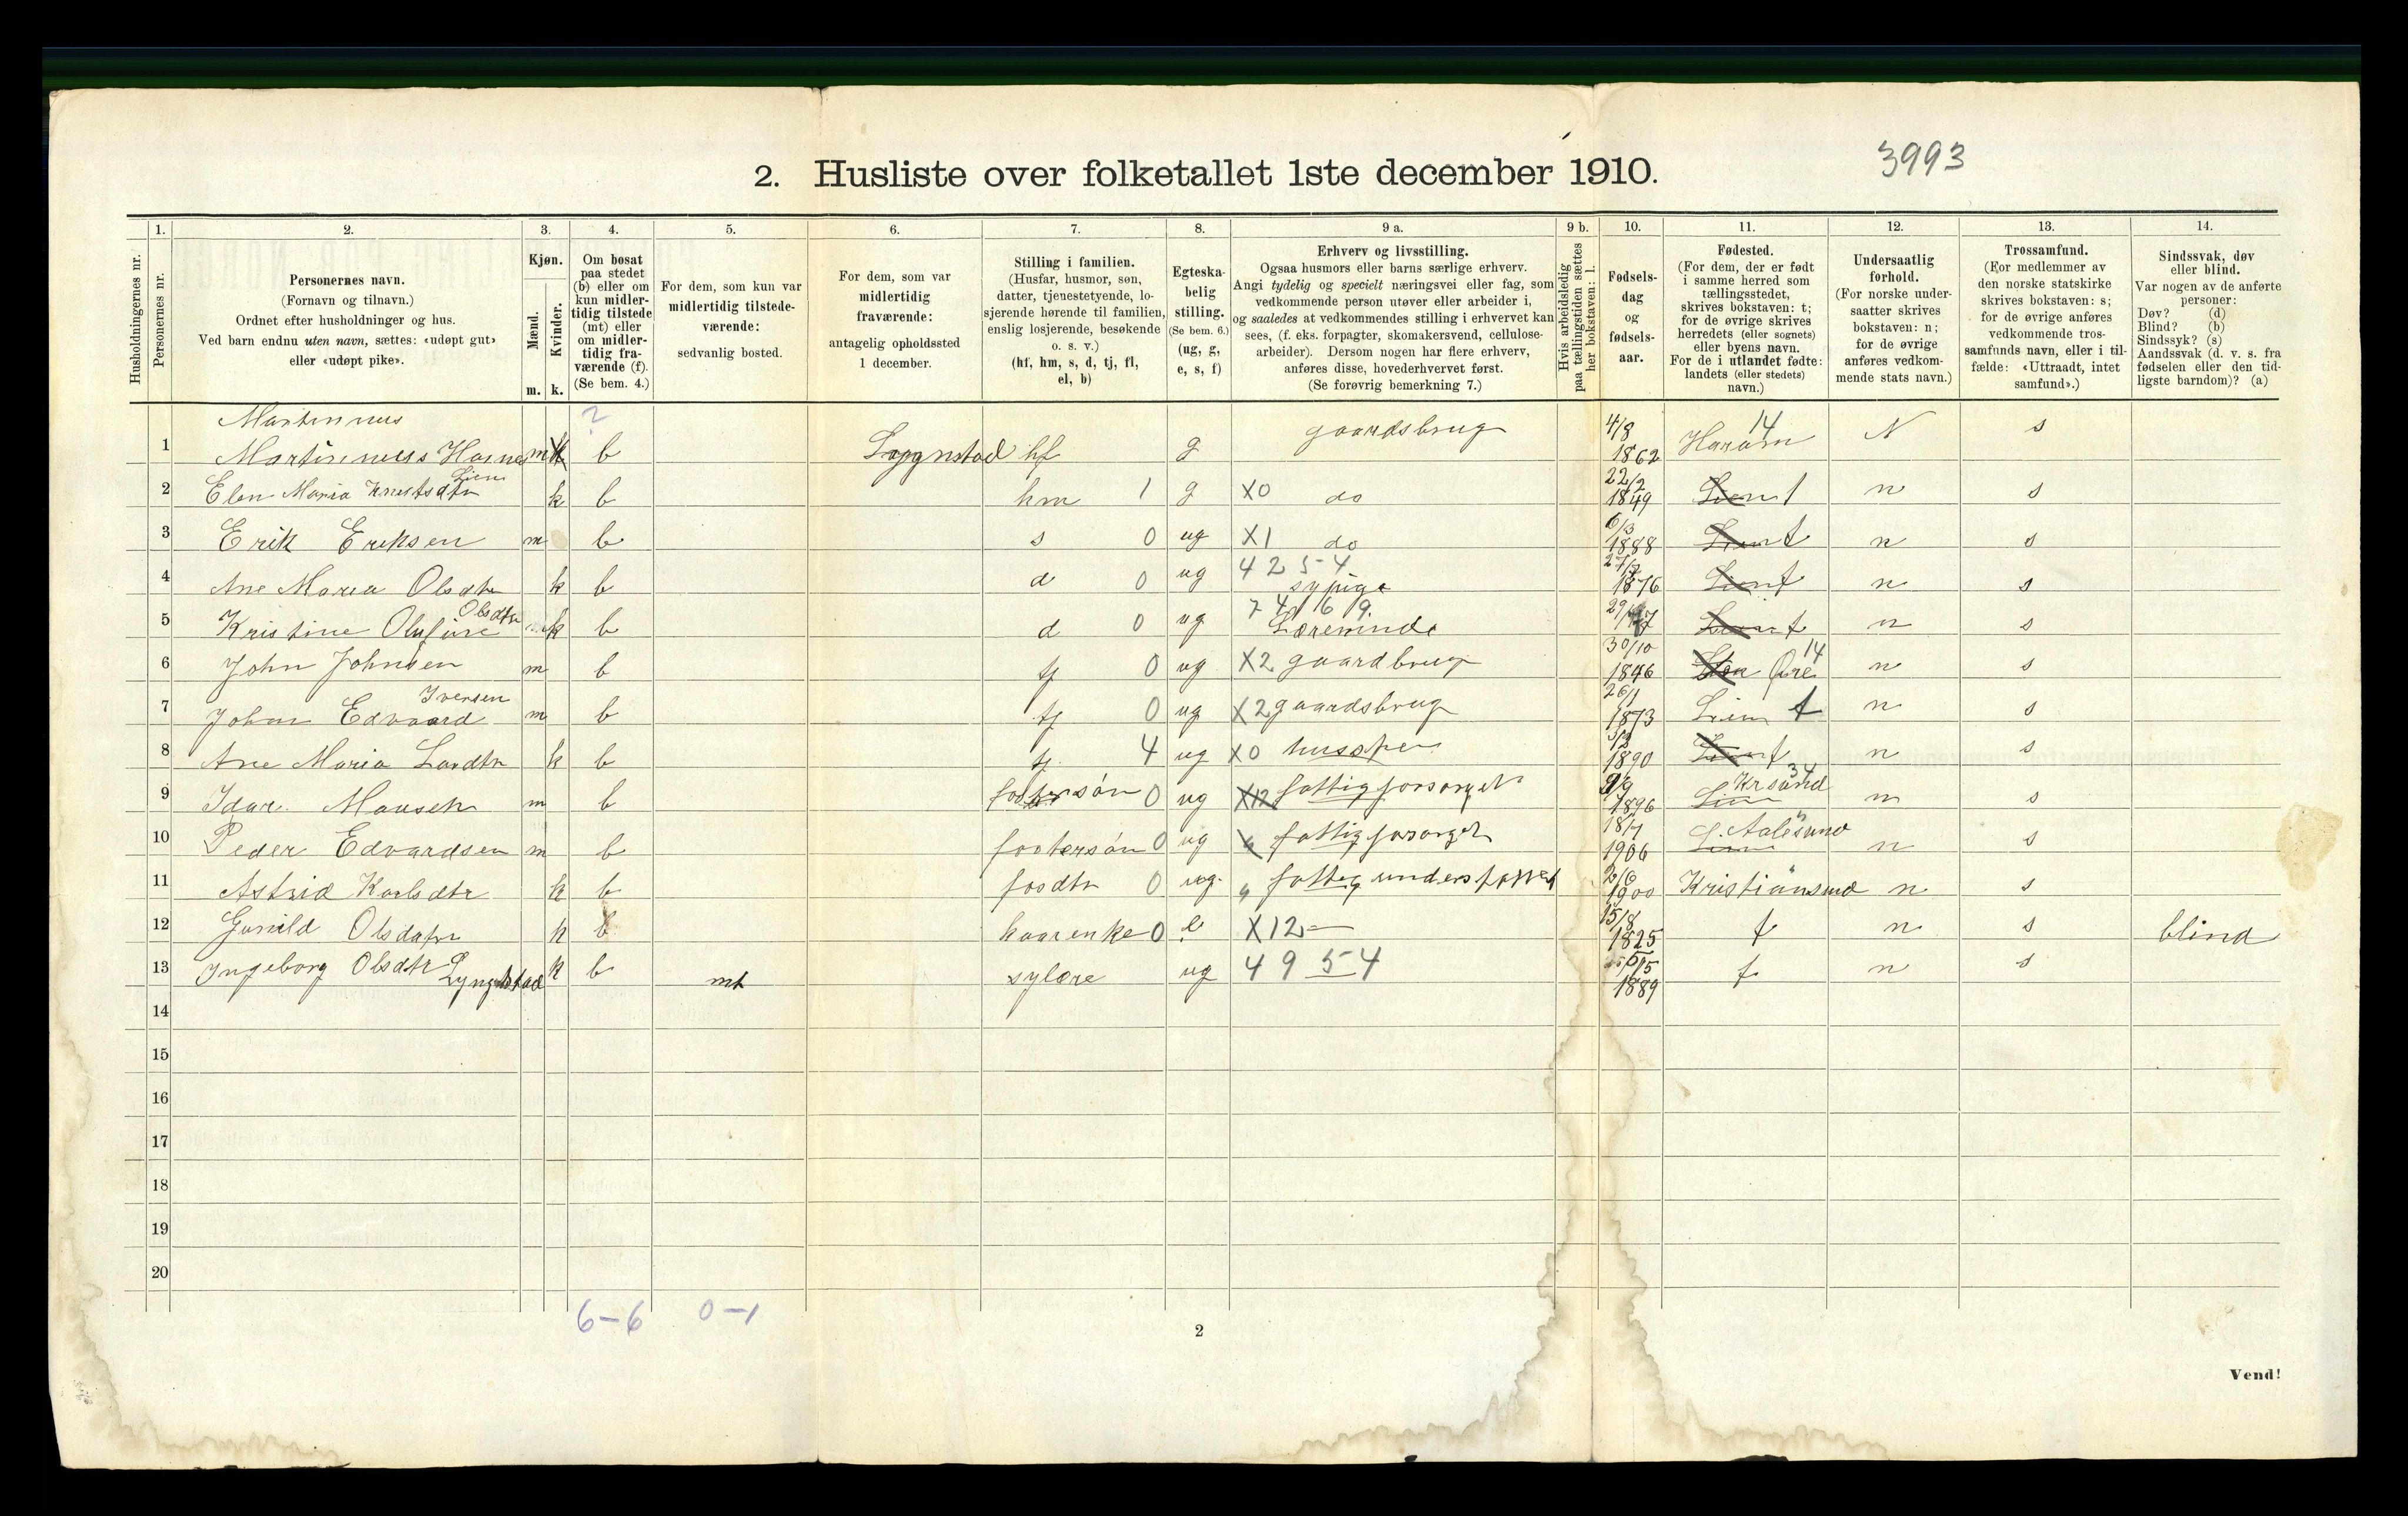 3993
2. Husliste over folketallet 1ste december 1910.
Husholdningernes nr.
1.
Personernes nr.
2.
Personernes navn.
(Fornavn og tilnavn.)
Ordnet efter husholdninger og hus.
Ved barn endnu uten navn, sættes: «udøpt gut»
eller «udøpt pike».
3.
Kjøn.
Mænd.
Kvinder.
m. k.
4.
Om bosat
paa stedet
(b) eller om
kun midler-
tidig tilstede
(mt) eller
om midler-
tidig fra-
værende (f).
(Se bem. 4.)
5.
For dem, som kun var
midlertidig tilstede-
værende:
sedvanlig bosted.
6.
For dem, som var
midlertidig
fraværende:
antagelig opholdssted
1 december.
7.
Stilling i familien.
(Husfar, husmor, søn,
datter, tjenestetyende, lo-
sjerende hørende til familien,
enslig losjerende, besøkende
o. s. v.)
(hf, hm, s, d, tj, fl,
el, b)
8.
Egteska-
belig
stilling.
(Se bem. 6.)
(ug, g,
e, s, f)
9 a.
Erhverv og livsstilling.
Ogsaa husmors eller barns særlige erhverv.
Angi tydelig og specielt næringsvei eller fag, som
vedkommende person utøver eller arbeider i,
og saaledes at vedkommendes stilling i erhvervet kan
sees, (f. eks. forpagter, skomakersvend, cellulose-
arbeider). Dersom nogen har flere erhverv,
anføres disse, hovederhvervet først.
(Se forøvrig bemerkning 7.)
9 b.
Hvis arbeidsledig
paa tællingstiden sættes
her bokstaven: l.
10.
Fødsels-
dag
og
fødsels-
aar.
11.
Fødested.
(For dem, der er født
i samme herred som
tællingsstedet,
skrives bokstaven: t;
for de øvrige skrives
herredets (eller sognets)
eller byens navn.
For de i utlandet fødte:
landets (eller stedets)
navn.)
12.
Undersaatlig
forhold.
(For norske under-
saatter skrives
bokstaven: n;
for de øvrige
anføres vedkom-
mende stats navn.)
13.
Trossamfund.
(For medlemmer av
den norske statskirke
skrives bokstaven: s;
for de øvrige anføres
vedkommende tros-
samfunds navn, eller i til-
fælde: «Uttraadt, intet
samfund».)
14.
Sindssvak, døv
eller blind.
Var nogen av de anførte
personer:
Døv? (d)
Blind? (b)
Sindssyk? (s)
Aandssvak (d. v. s. fra
fødselen eller den tid-
ligste barndom)? (a)
Martinnus ? 4/8 14
1 m b hf g gaardsbrug 1862 Haram N s
2 Elen Maria k b hm 1 g X0 do 22/2 1849 t n s
3 Erik Eriksen m b s 0 ug X1 do 6/3 1888 t n s
4 Ane Maria Olsdtr k b d 0 ug 4254 sypige 1876 t n s
5 Kristine Olufine Olsdtr k b d 0 ug 74 69 Lærerinde t n s
6 John Johnsen m b tj 0 ug X2 gaardbrug 30/10 1846 Øre 14 n s
7 Johan Edvaard Iversen m b tj 0 ug X2 gaardsbrug 26/1 1873 t n s
8 Ane Maria k b tj 4 ug X0 1890 t n s
9 Idar m b fostersøn 0 ug X12 fattigforsørget 1896 Krsund 34 n s
10 Peder Edvardsen m b fostersøn 0 ug " fattigforsørget 18/7 1906 Aalesund n s
11 Astrid Karlsdtr k b fosdtr 0 ug " fattig 1900 Kristiansund n s
12 Gunild Olsdatr k b kaarenke 0 e X12 15/8 1825 t n s blind
13 Ingeborg Olsdtr k b mt sylære ug 4954 1889 t n s
14
15
16
17
18
19
20
6-6 0-1
2
Vend!